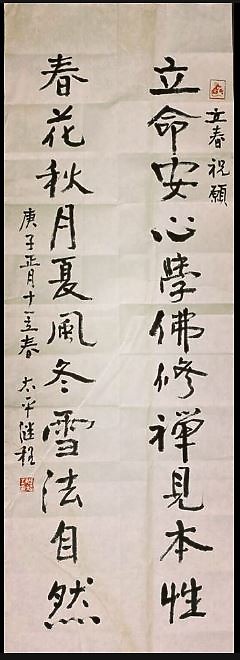 立春祝願
立命安心學佛修禪見本性
春花秋月夏風冬雪法自然
庚子正月十一立春 太平繼程